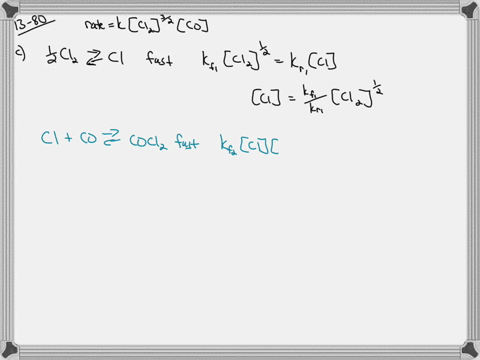 13-80
rate = k[Cl2]^3/2 [CO]
c) ½Cl2 ⇄ Cl fast kf1[Cl2]^½ = kr1[Cl]
[Cl] = kf1/kr1 [Cl2]^½
Cl + CO ⇄ COCl2 fast kf2[Cl][